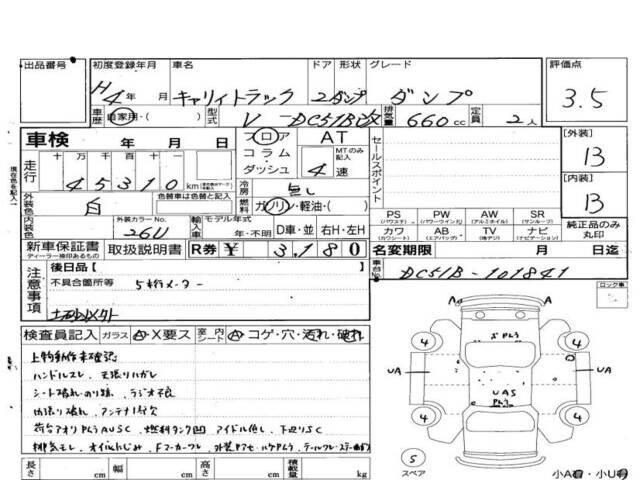 出品番号
初度登録年月 車名 ドア 形状 グレード 評価点
H4年 月 キャリイトラック 2 ダンプ ダンプ 3.5
車歴 自家用・( ) 型式 V-DC51B改 排気量 660cc 定員 2人
車検 年 月 日
フロア コラム・ダッシュ AT MTのみ記入 4速
セールスポイント
[外装] 13
[内装] 13
走行 十万千百十 45310km
冷房 無し
外装色 白 色替車は色替と記入
燃料 ガソリン・軽油・( )
内装色 外装カラーNo. 26U 輸入車 モデル年式 年・不明 D車・並 右H・左H
PS (パワステ) PW (パワーウィンド) AW (アルミホイル) SR (サンルーフ)
カワ (カワシート) AB (エアバッグ) TV (地デジ) ナビ (ナビゲーション)
純正品のみ丸印
新車保証書 ディーラー捺印あるもの 取扱説明書 R券 ¥ 3,180
名変期限 月 日迄
注意事項 後日品[ ]
不具合箇所等 5桁メーター
車台No. DC51B-101841
ロック車
検査員記入 ガラス A・X要ス 室内 シート A コゲ・穴・汚れ・破れ
上物動作未確認
ハンドルスレ、天張りハガレ
シート破れ・のり跡、ラジオ不良
内張り破れ、アンテナ欠
荷台アオリPくうAUSC、燃料タンク凹 アイドル低し、下廻りSC
排気モレ、オイルにじみ、Fマーカーワレ
長さ cm 幅 cm 高さ cm 積載量 kg
A A
4 4
UA UA
UAS
4 4
5
スペア
小A・小U